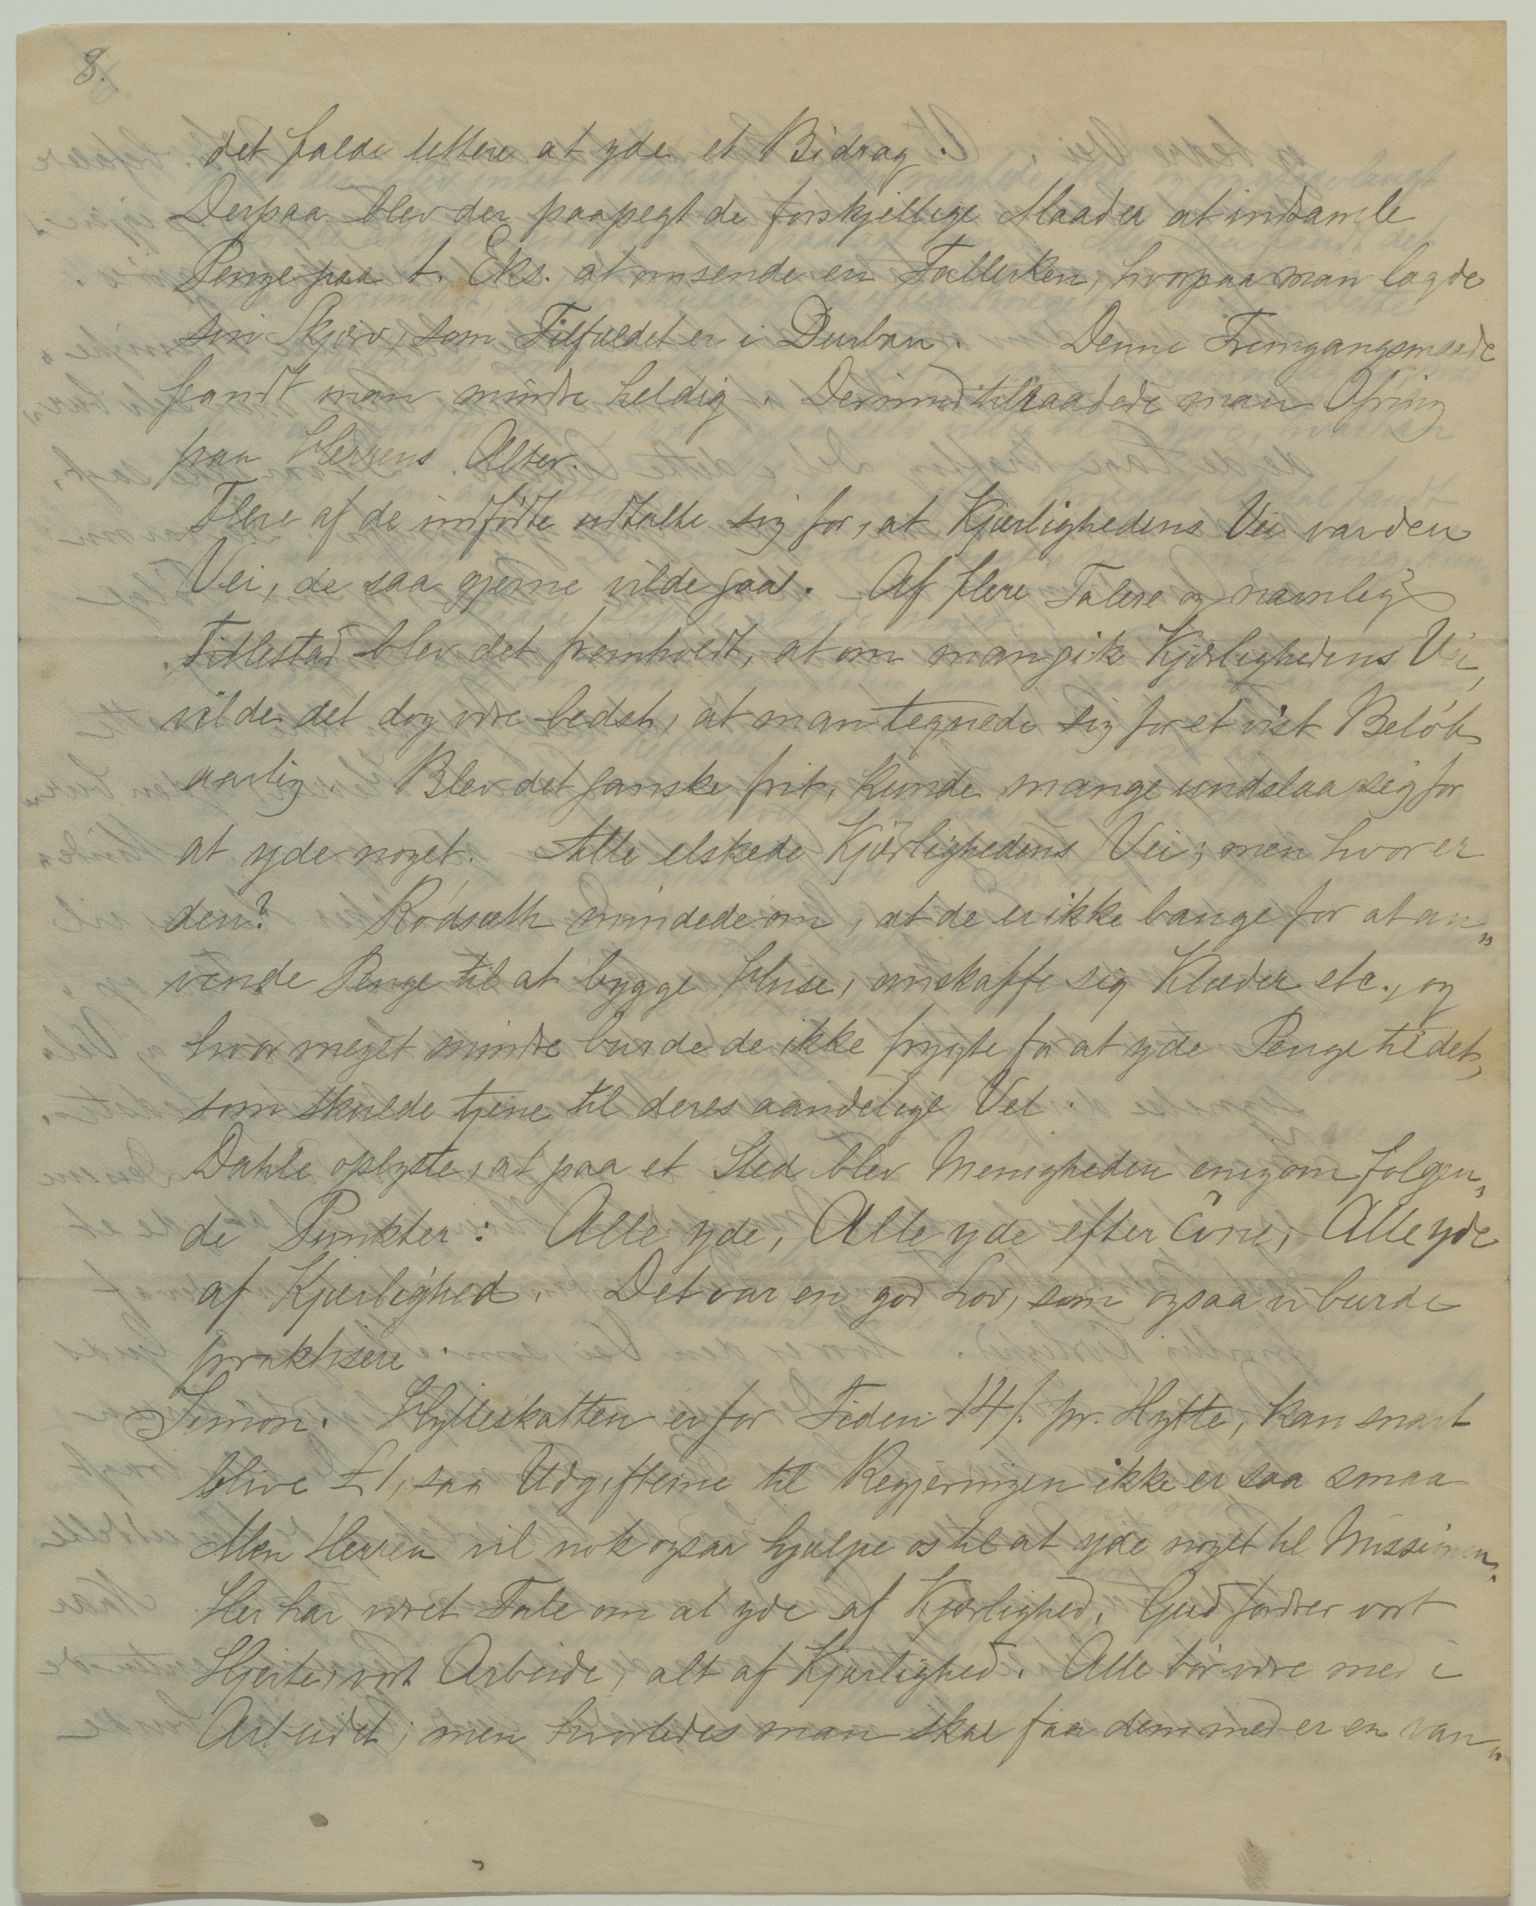 8.
det falde lettere at yde et Bidrag.
Derpaa blev der paapegt de forskjellige Maader at indsamle
Penge paa t. Eks. at omsende en Tallerken, hvorpaa man lagde
sin Skjærv, som Tilfældet er i Durban. Denne Fremgangsmaade
fandt man mindre heldig. Derimod tilraadede man Ofring
paa Herrens Alter.
Flere af de indfödte udtalte sig for, at Kjærlighedens Vei var den
Vei, de saa gjerne vilde gaa. Af flere Talere og navnlig
Titlestad blev det fremholdt, at om man gik Kjærlighedens Vei,
vilde det dog være bedst, at man tegnede sig for et vist Belöb
aarlig Blev det ganske frit, kunde mange undslaa sig for
at yde noget. Alle elskede Kjærlighedens Vei; men hvor er
den? Rödsæth mindede om, at de er ikke bange for at an„
vende Penge til at bygge Huse, anskaffe sig Klæder etc., og
hvor meget mindre burde de ikke frygte for at yde Penge til det,
som skulde tjene til deres aandelige Vel.
Dahle oplyste, at paa et Sted blev Menigheden enig om folgen„
de Punkter: Alle yde, Alle yde efter Evne, Alle yde
af Kjærlighed. Det var en god Lov, som ogsaa vi burde
praktisere.
Simon. Hytteskatten er for Tiden 14/. pr. Hytte, kan snart
blive £1, saa Udgifterne til Regjeringen ikke er saa smaa
Men Herren vil nok ogsaa hjælpe os til at yde noget til Missionen.
Her har været Tale om at yde af Kjærlighed. Gud fordrer vort
Hjerte, vort Arbeide, alt af Kjærlighed. Alle bör være med i
Arbeidet; men hvorledes man skal faa dem med er en van„